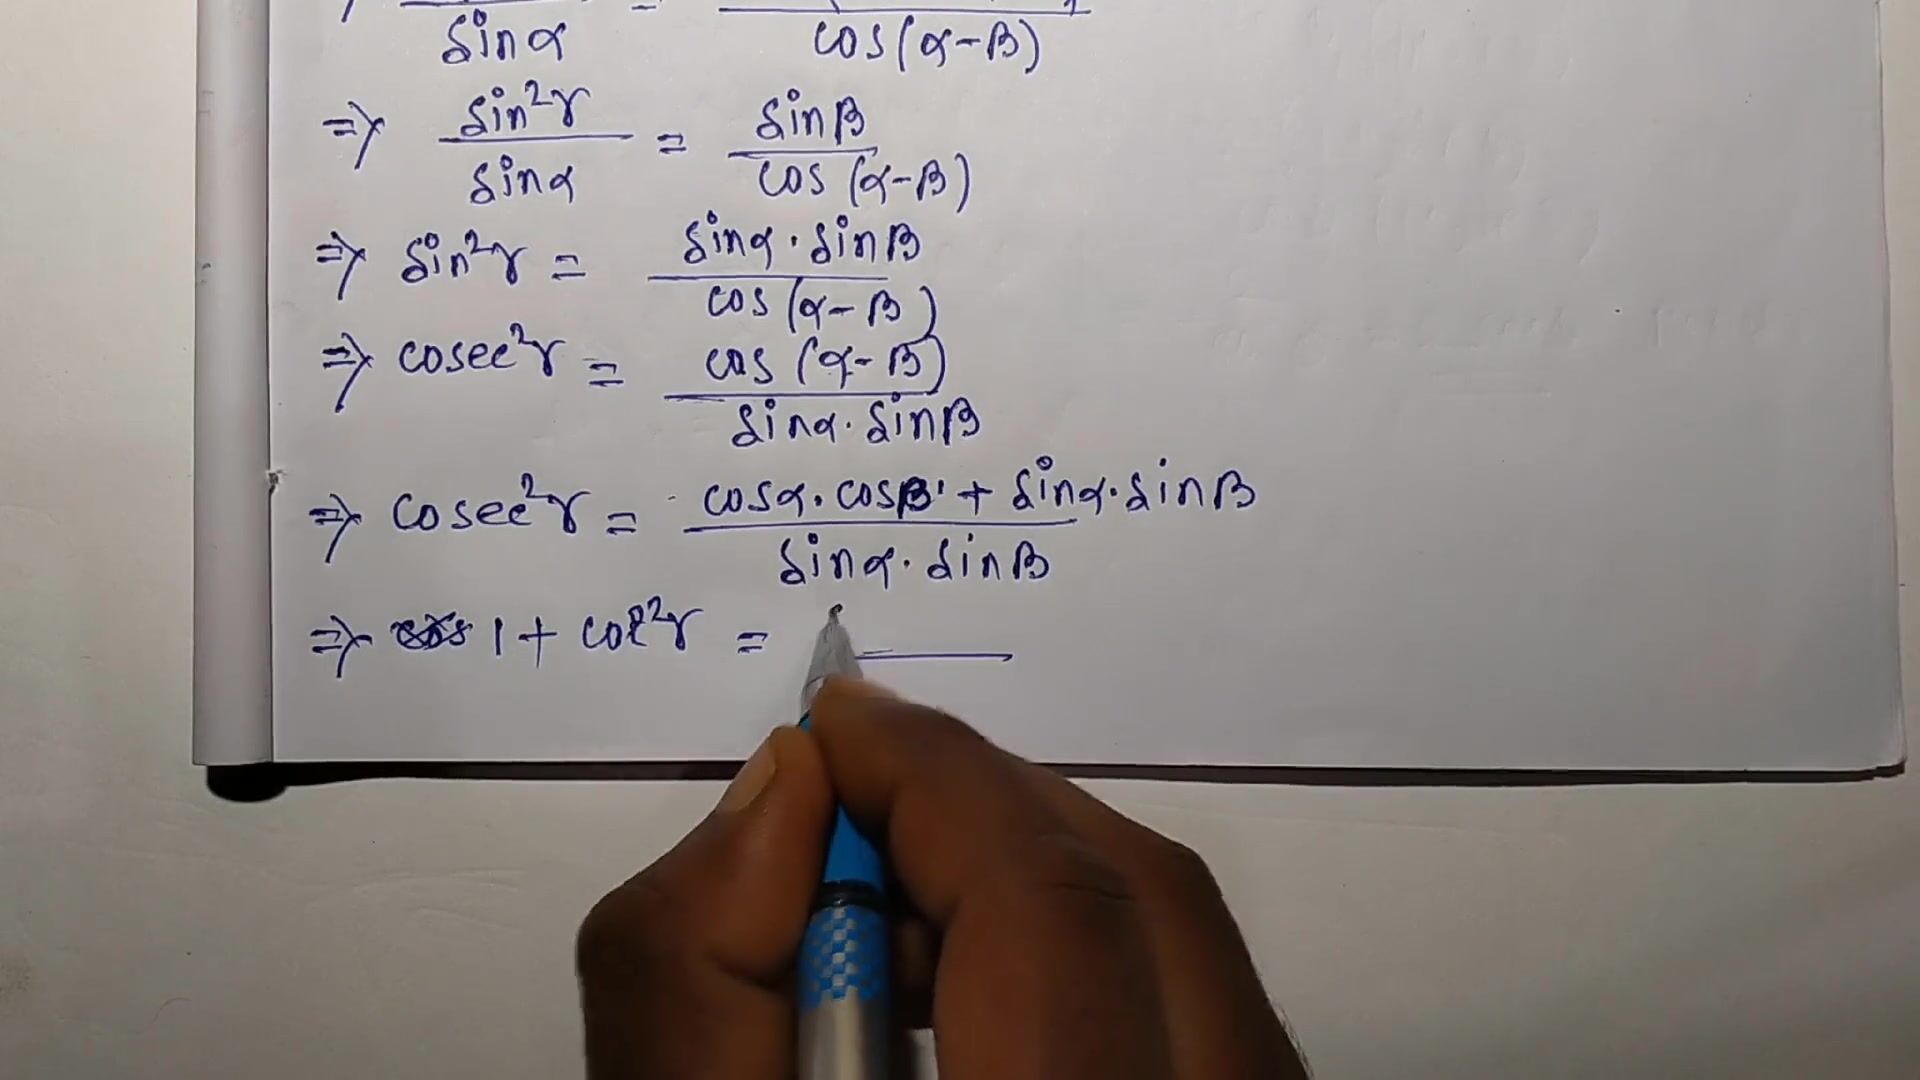 sinα = cos(α-β)
⇒ sin²γ / sinα = sinβ / cos(α-β)
⇒ sin²γ = sinα·sinβ / cos(α-β)
⇒ cosec²γ = cos(α-β) / sinα·sinβ
⇒ cosec²γ = cosα·cosβ + sinα·sinβ / sinα·sinβ
⇒ 1 + cot²γ =